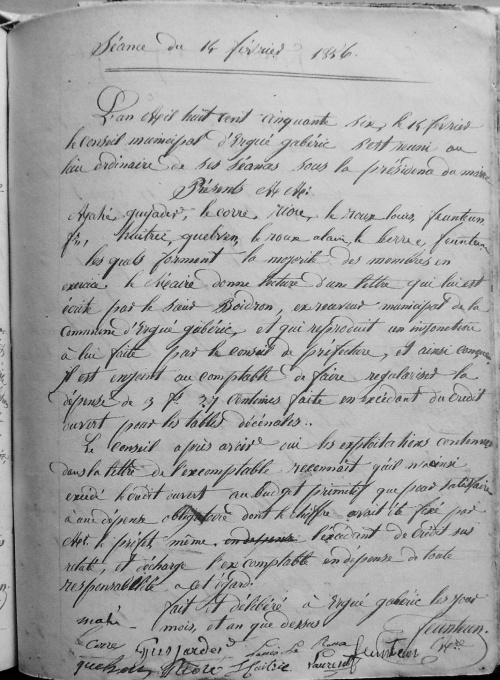 Séance du 14 février 1856.
L'an Mil huit cent cinquante six, le 14 février
le conseil municipal d'Ergué gabéric s'est réuni au
lieu ordinaire de ses séances sous la présidence du maire
Présents MM.
Mahé, guyader, le corre, riou, le roux louis, feunteun
huitric, quelven, le roux alain, le berre, feunteun
les quels forment la majorité des membres en
exercice. le Maire donne lecture d'une lettre qui lui est
écrite par le sieur Boidron, ex receveur municipal de la
commune d'Ergué gabéric, et qui reproduit un injonction
à lui faite par le conseil de préfecture, et ainsi conçue
Il est enjoint au comptable de faire régulariser la
dépense de 3 fr 27 centimes faite en excédant du crédit
ouvert pour les tables décénales..
Le Conseil après avoir oui les explications contenues
dans la lettre de l'excomptable reconnait qu'il n'a ainsi
excédé le crédit ouvert au budget primitif que pour satisfaire
à une dépense obligatoire dont le chiffre avait été fixé par
Mr. le préfet même l'excédant de crédit sus
relaté, et décharge l'excomptable en dépense de toute
responsabilité a cet égard.
fait et délibéré à Ergué gabéric les jour
mois, et an que dessus
mahé feunteun
Corre guyader Louis Le Roux feunteun
quelven Riou huitric